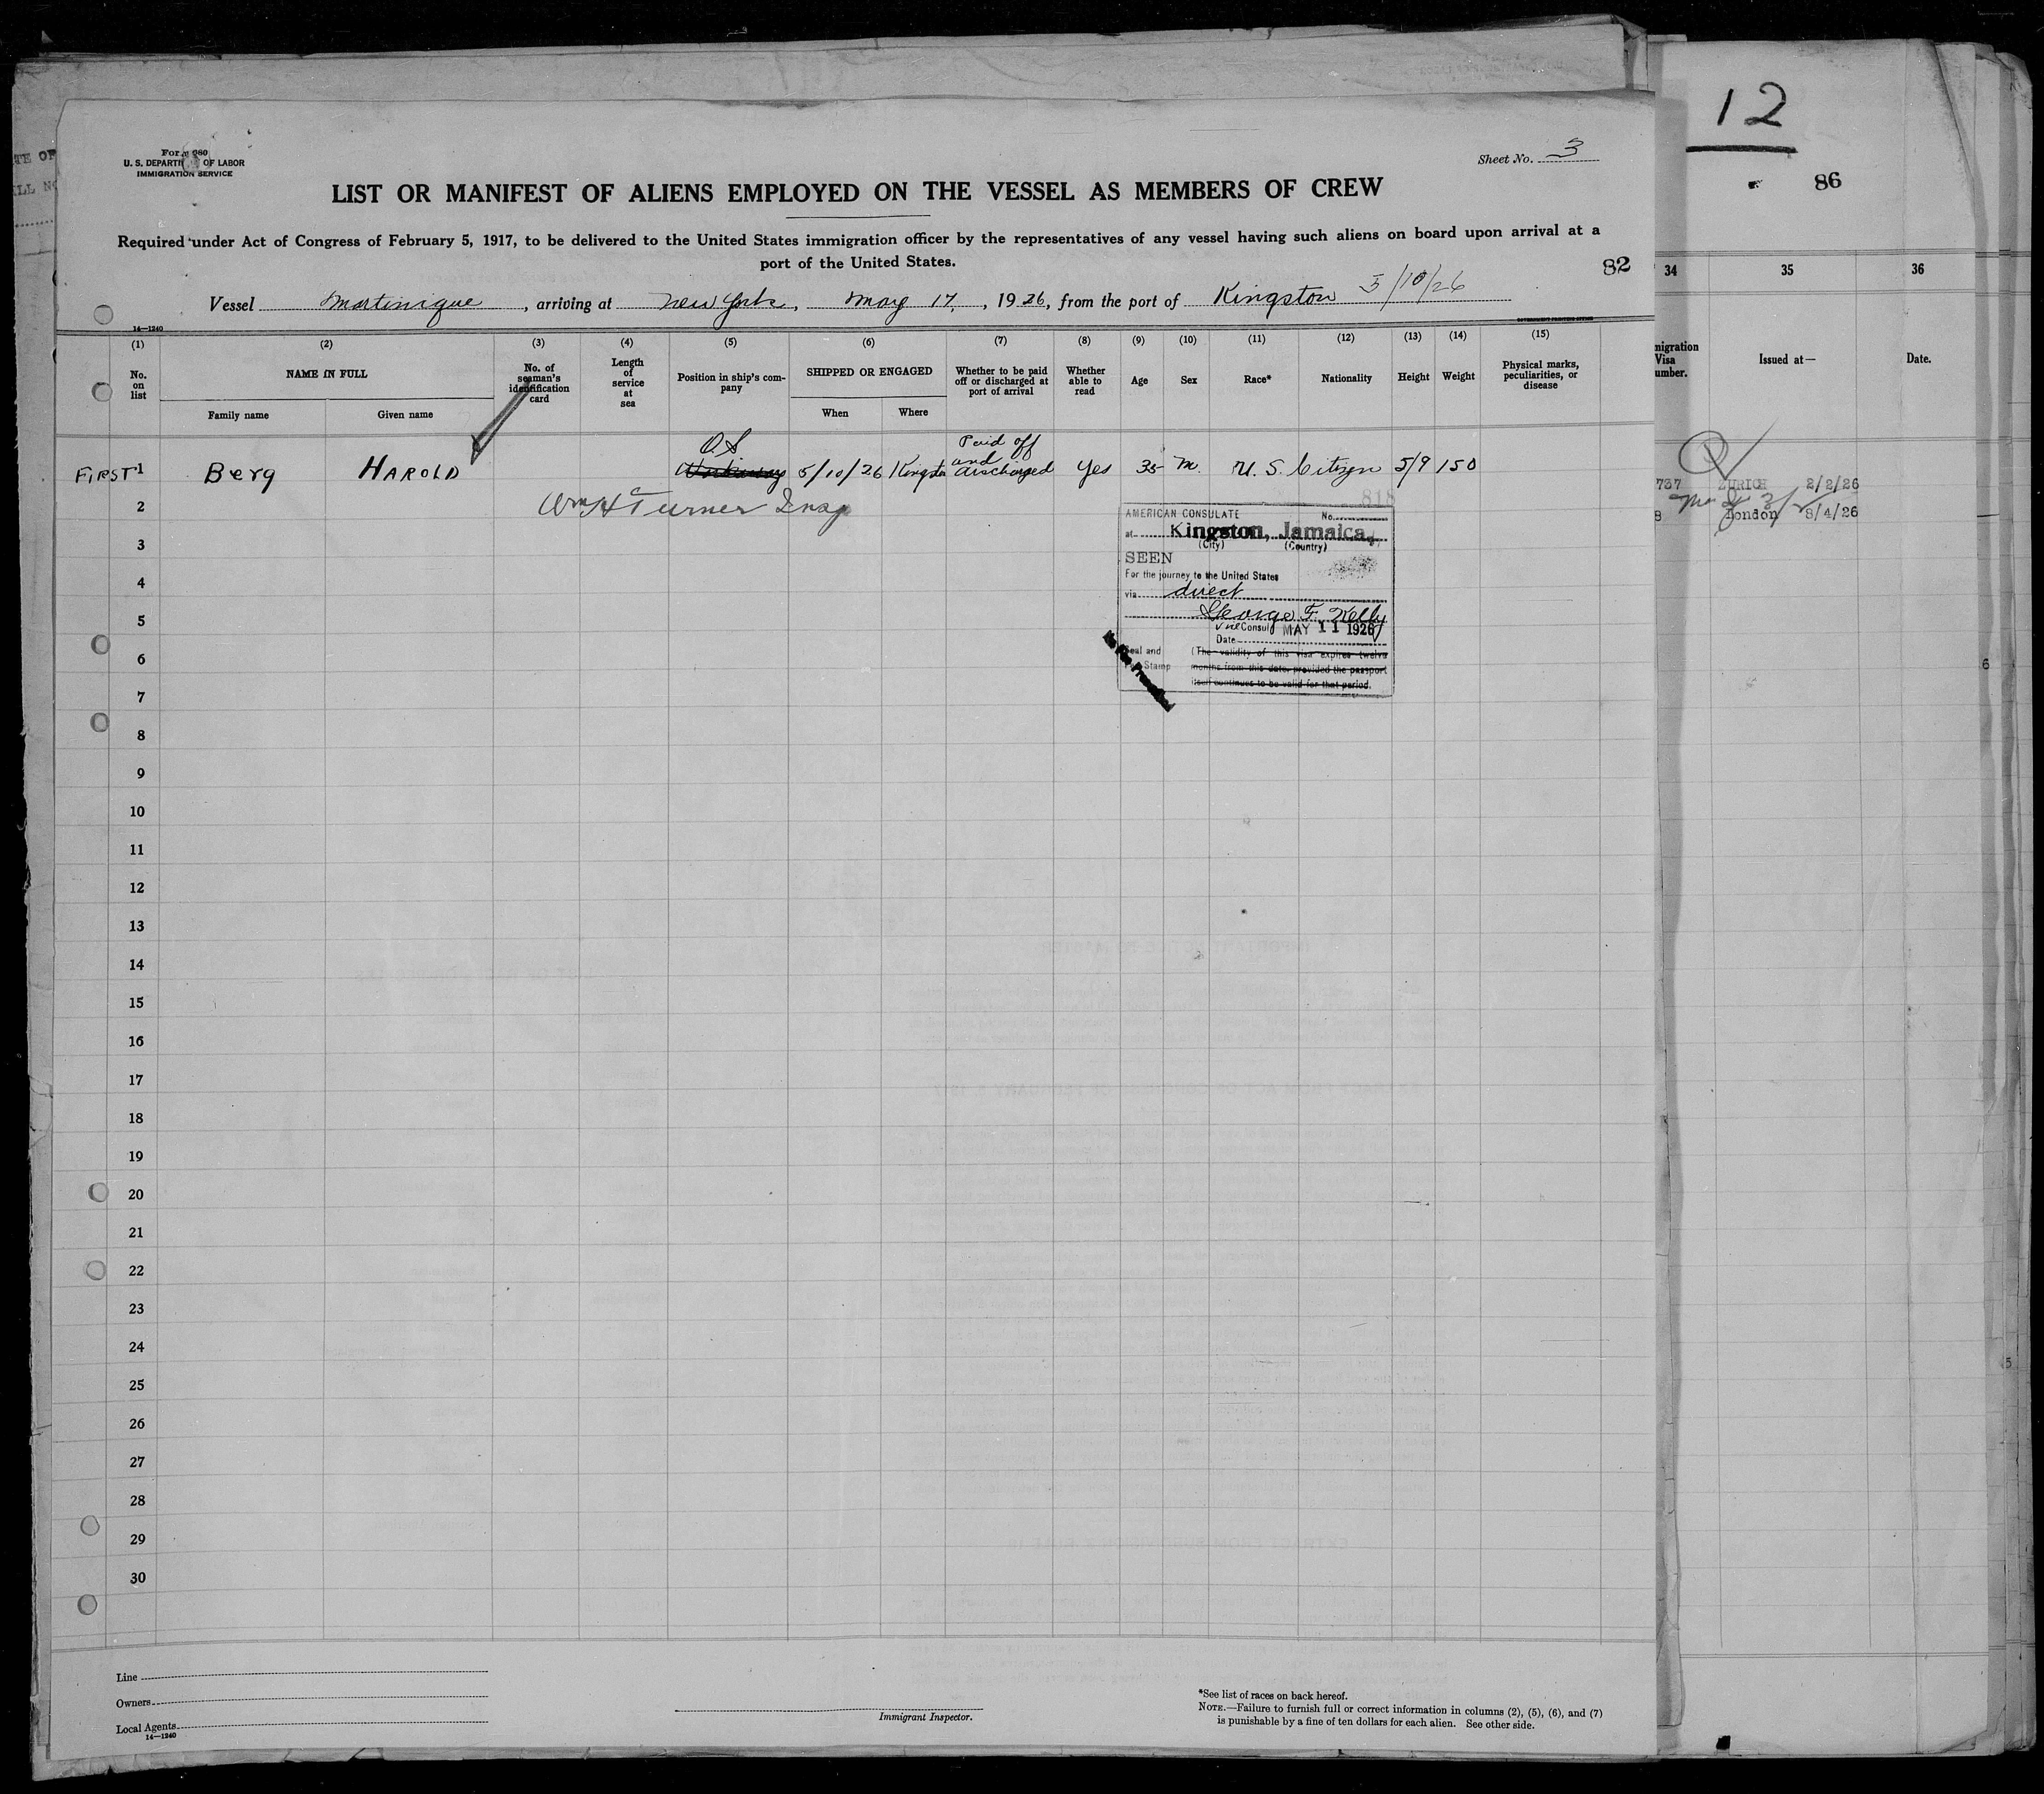 12
86
Form 680
U. S. DEPARTMENT OF LABOR
IMMIGRATION SERVICE
Sheet No. 3
LIST OR MANIFEST OF ALIENS EMPLOYED ON THE VESSEL AS MEMBERS OF CREW
Required under Act of Congress of February 5, 1917, to be delivered to the United States immigration officer by the representatives of any vessel having such aliens on board upon arrival at a
port of the United States.
82
Vessel Martinique, arriving at New York, May 17, 1926, from the port of Kingston 5/10/26
14—1240
GOVERNMENT PRINTING OFFICE
(1) (2) (3) (4) (5) (6) (7) (8) (9) (10) (11) (12) (13) (14) (15)
No. on list
NAME IN FULL
Family name
Given name
No. of seaman's identification card
Length of service at sea
Position in ship's company
SHIPPED OR ENGAGED
When
Where
Whether to be paid off or discharged at port of arrival
Whether able to read
Age
Sex
Race*
Nationality
Height
Weight
Physical marks, peculiarities, or disease
FIRST 1 Berg HAROLD O.S 5/10/26 Kingston Paid off and discharged Yes 35 M. U. S. Citizen 5/9 150
2 Wm H Turner Insp
818
AMERICAN CONSULATE No.
at Kingston, Jamaica,
(City) (Country)
SEEN
For the journey to the United States
via direct
George F. Kelly
Vice Consul
Date MAY 11 1926
Seal and
Stamp
(The validity of this visa expires twelve
months from this date, provided the passport
itself continues to be valid for that period.
3
4
5
6
7
8
9
10
11
12
13
14
15
16
17
18
19
20
21
22
23
24
25
26
27
28
29
30
Line
Owners
Local Agents
14—1240
Immigrant Inspector.
*See list of races on back hereof.
NOTE.—Failure to furnish full or correct information in columns (2), (5), (6), and (7)
is punishable by a fine of ten dollars for each alien. See other side.
34 35 36
migration
Visa
umber.
Issued at—
Date.
737 ZURICH 2/2/26
8 London 8/4/26
6
5